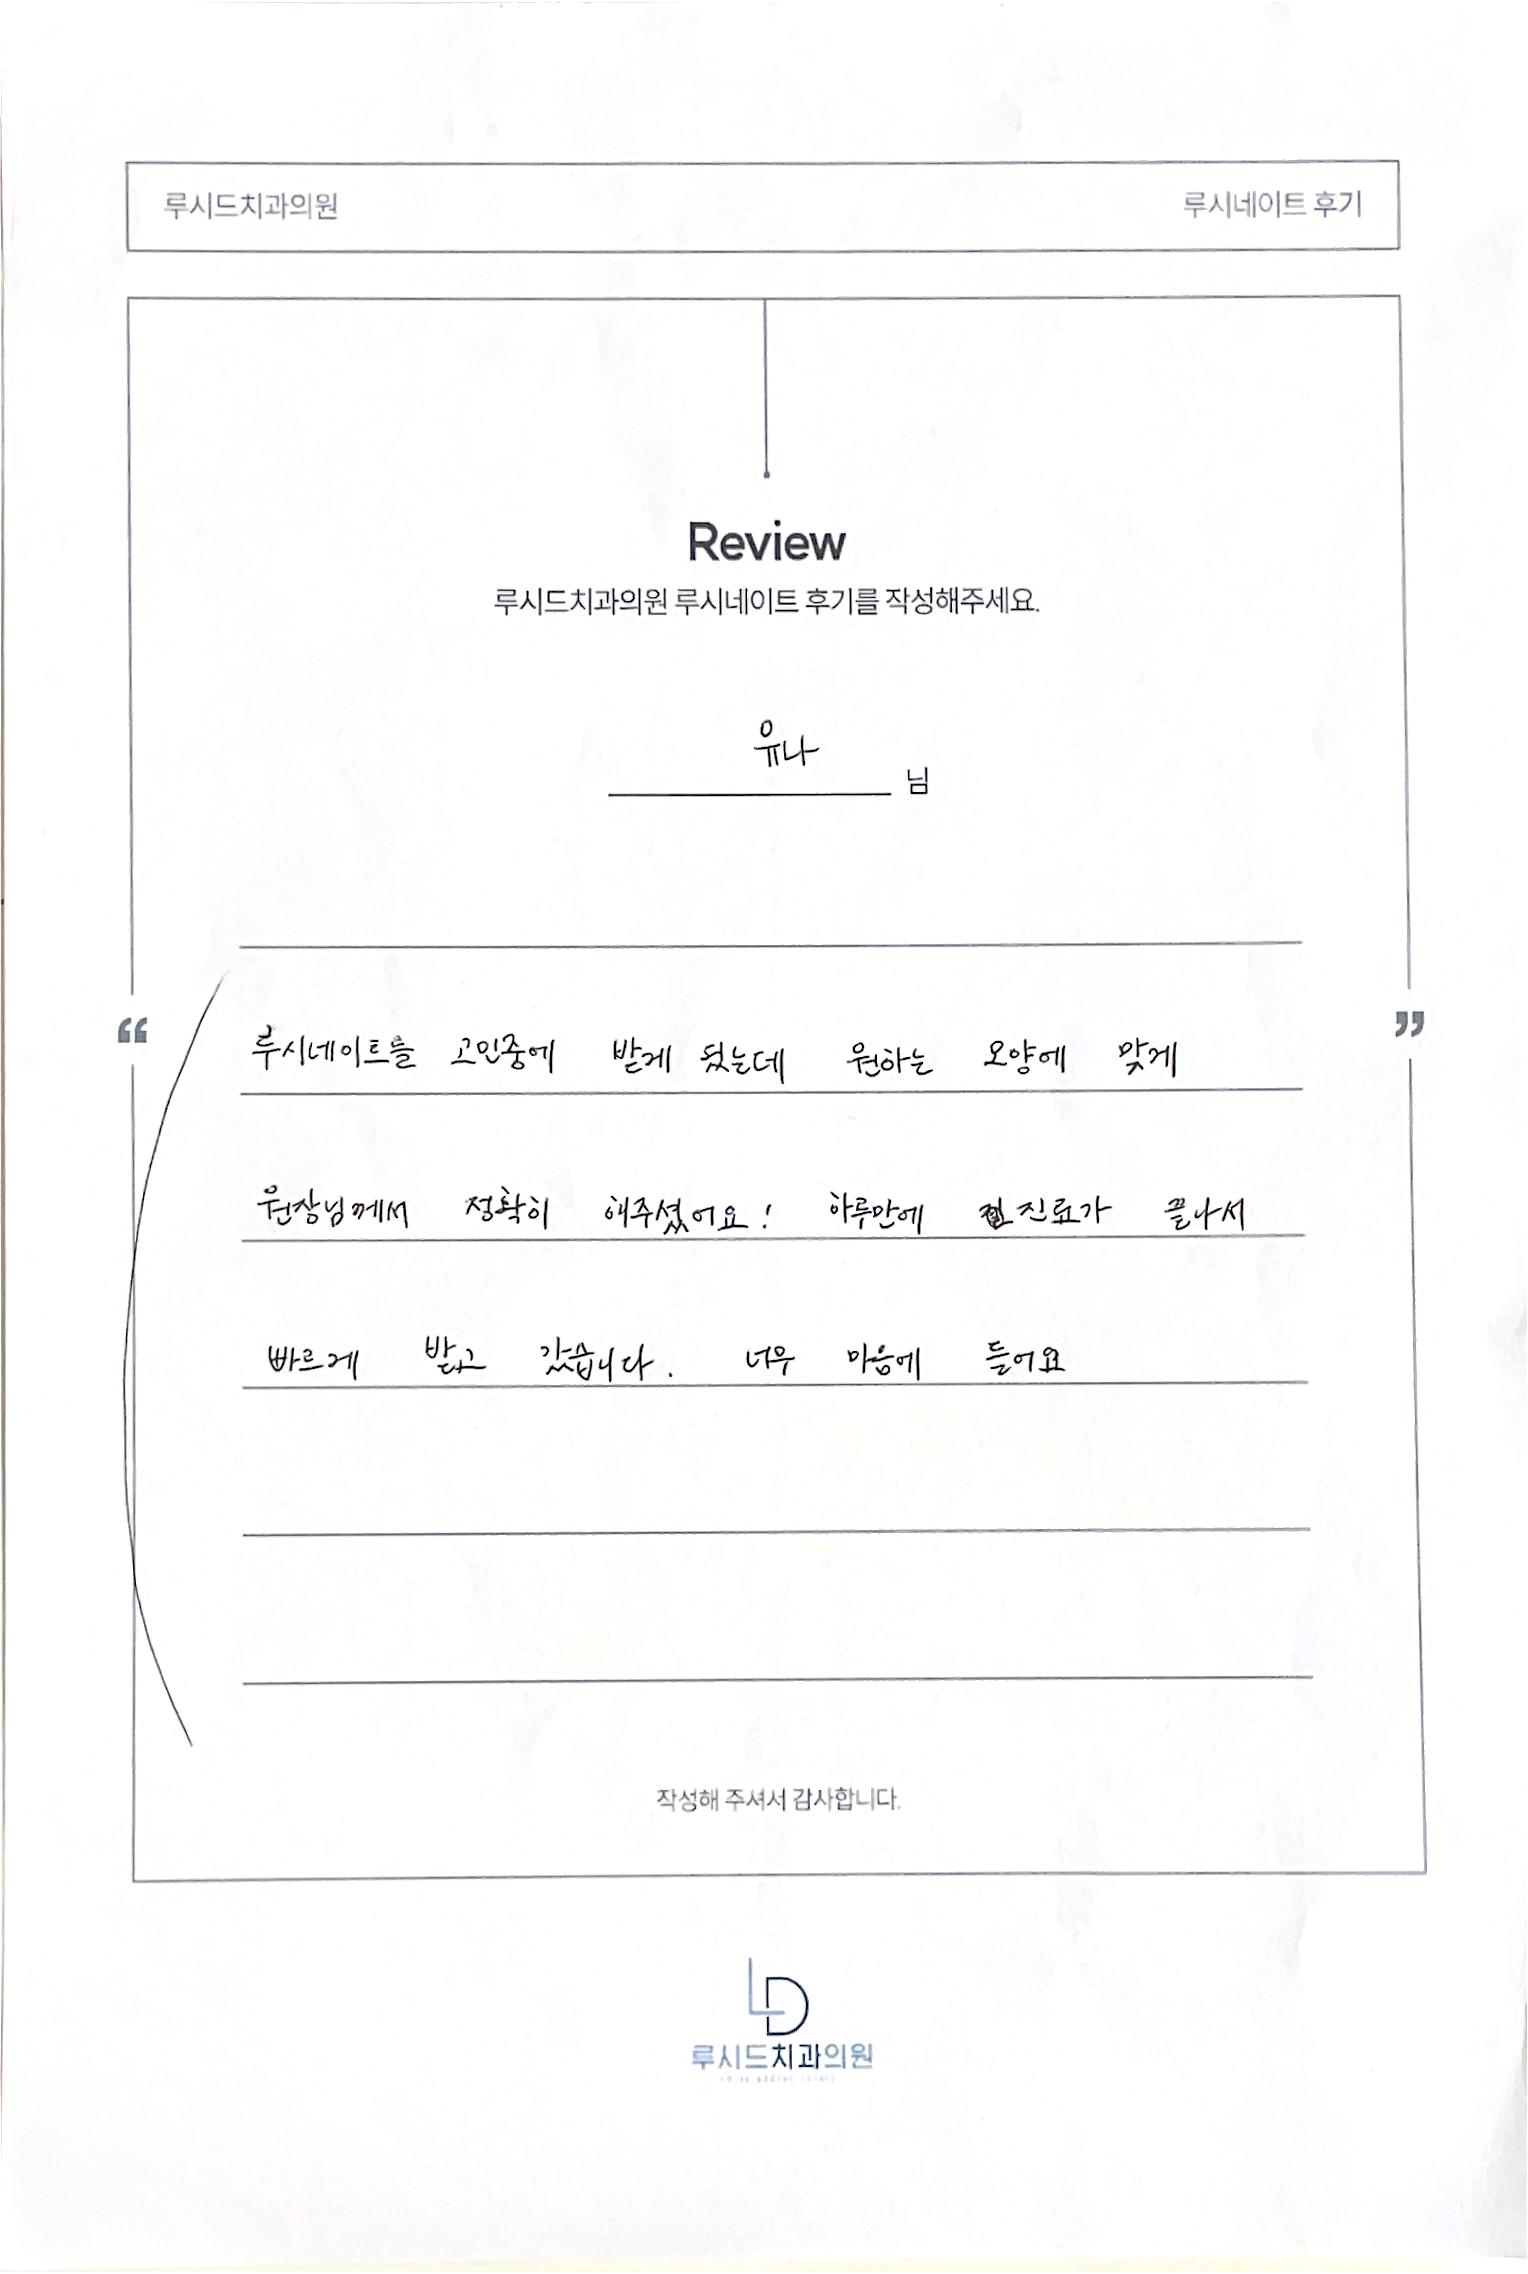 루시드치과의원
루시네이트 후기
Review
루시드치과의원 루시네이트 후기를 작성해주세요.
유나 님
“ ”
루시네이트를 고민중에 받게 됐는데 원하는 모양에 맞게
원장님께서 정확히 해주셨어요! 하루만에 진료가 끝나서
빠르게 받고 갔습니다. 너무 마음에 들어요
작성해 주셔서 감사합니다.
LD
루시드치과의원